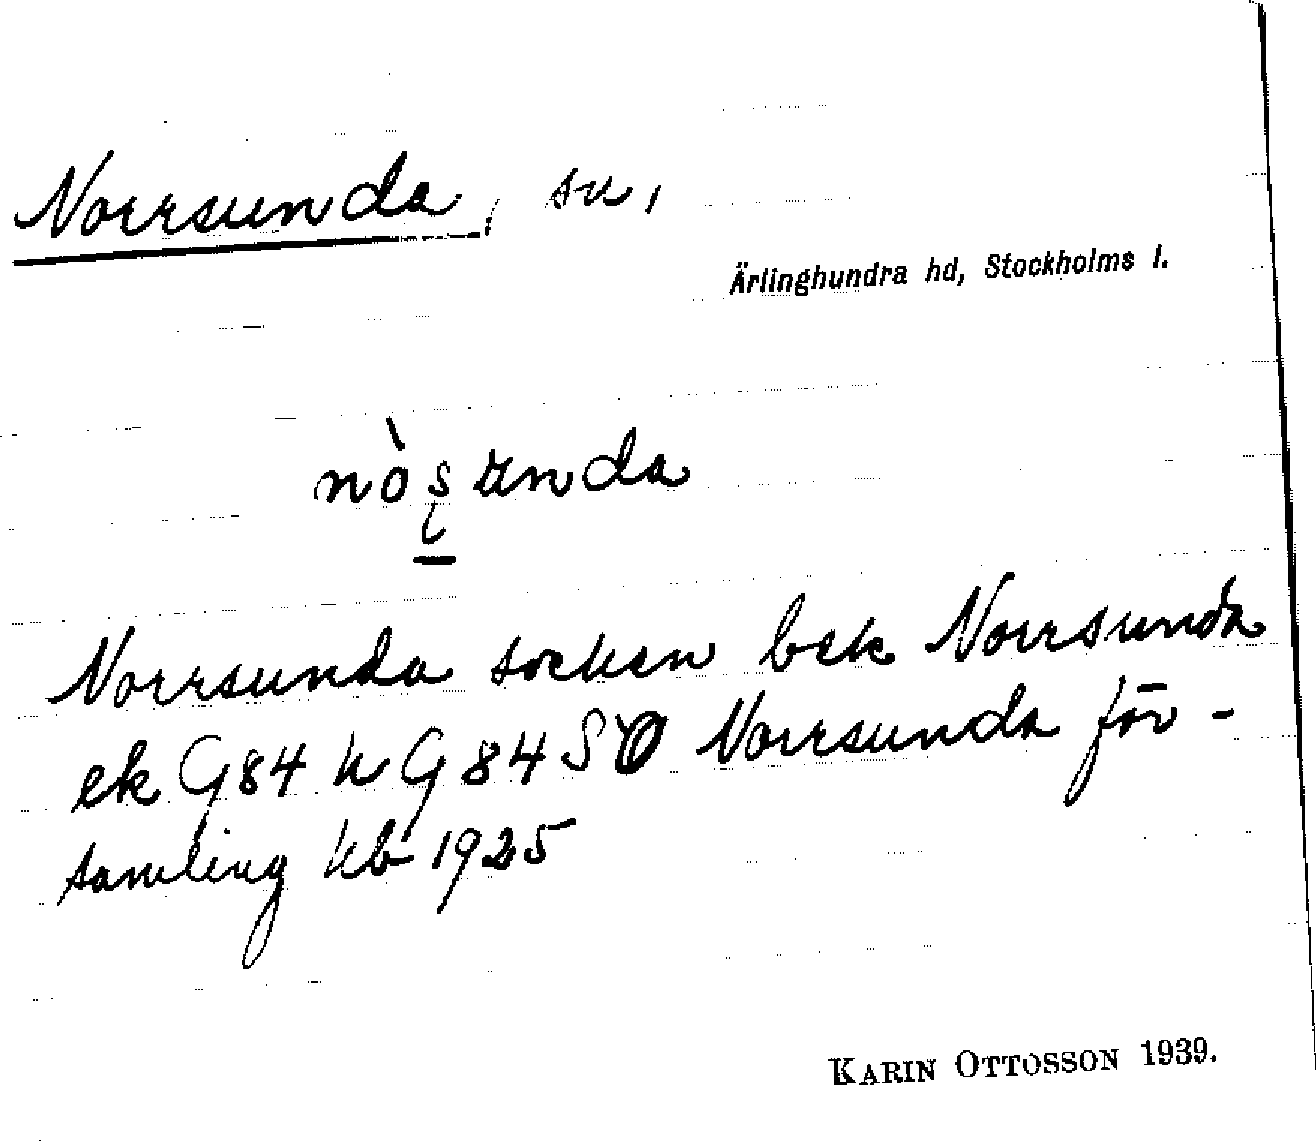 Norrsunda, sn,
Ärlinghundra hd, Stockholms l.
nòʂunda
Norrsunda socken bek Norrsunda
ek G84 k G84 SO Norrsunda för-
samling kb 1925
KARIN OTTOSSON 1939.